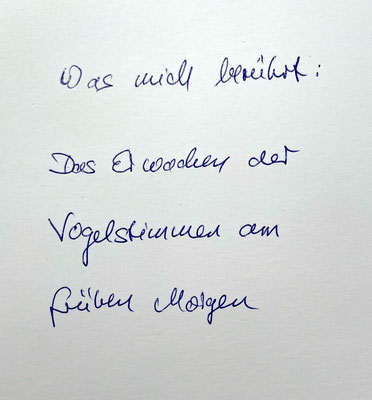 Was mich berührt:
Das Erwachen der
Vogelstimmen am
frühen Morgen